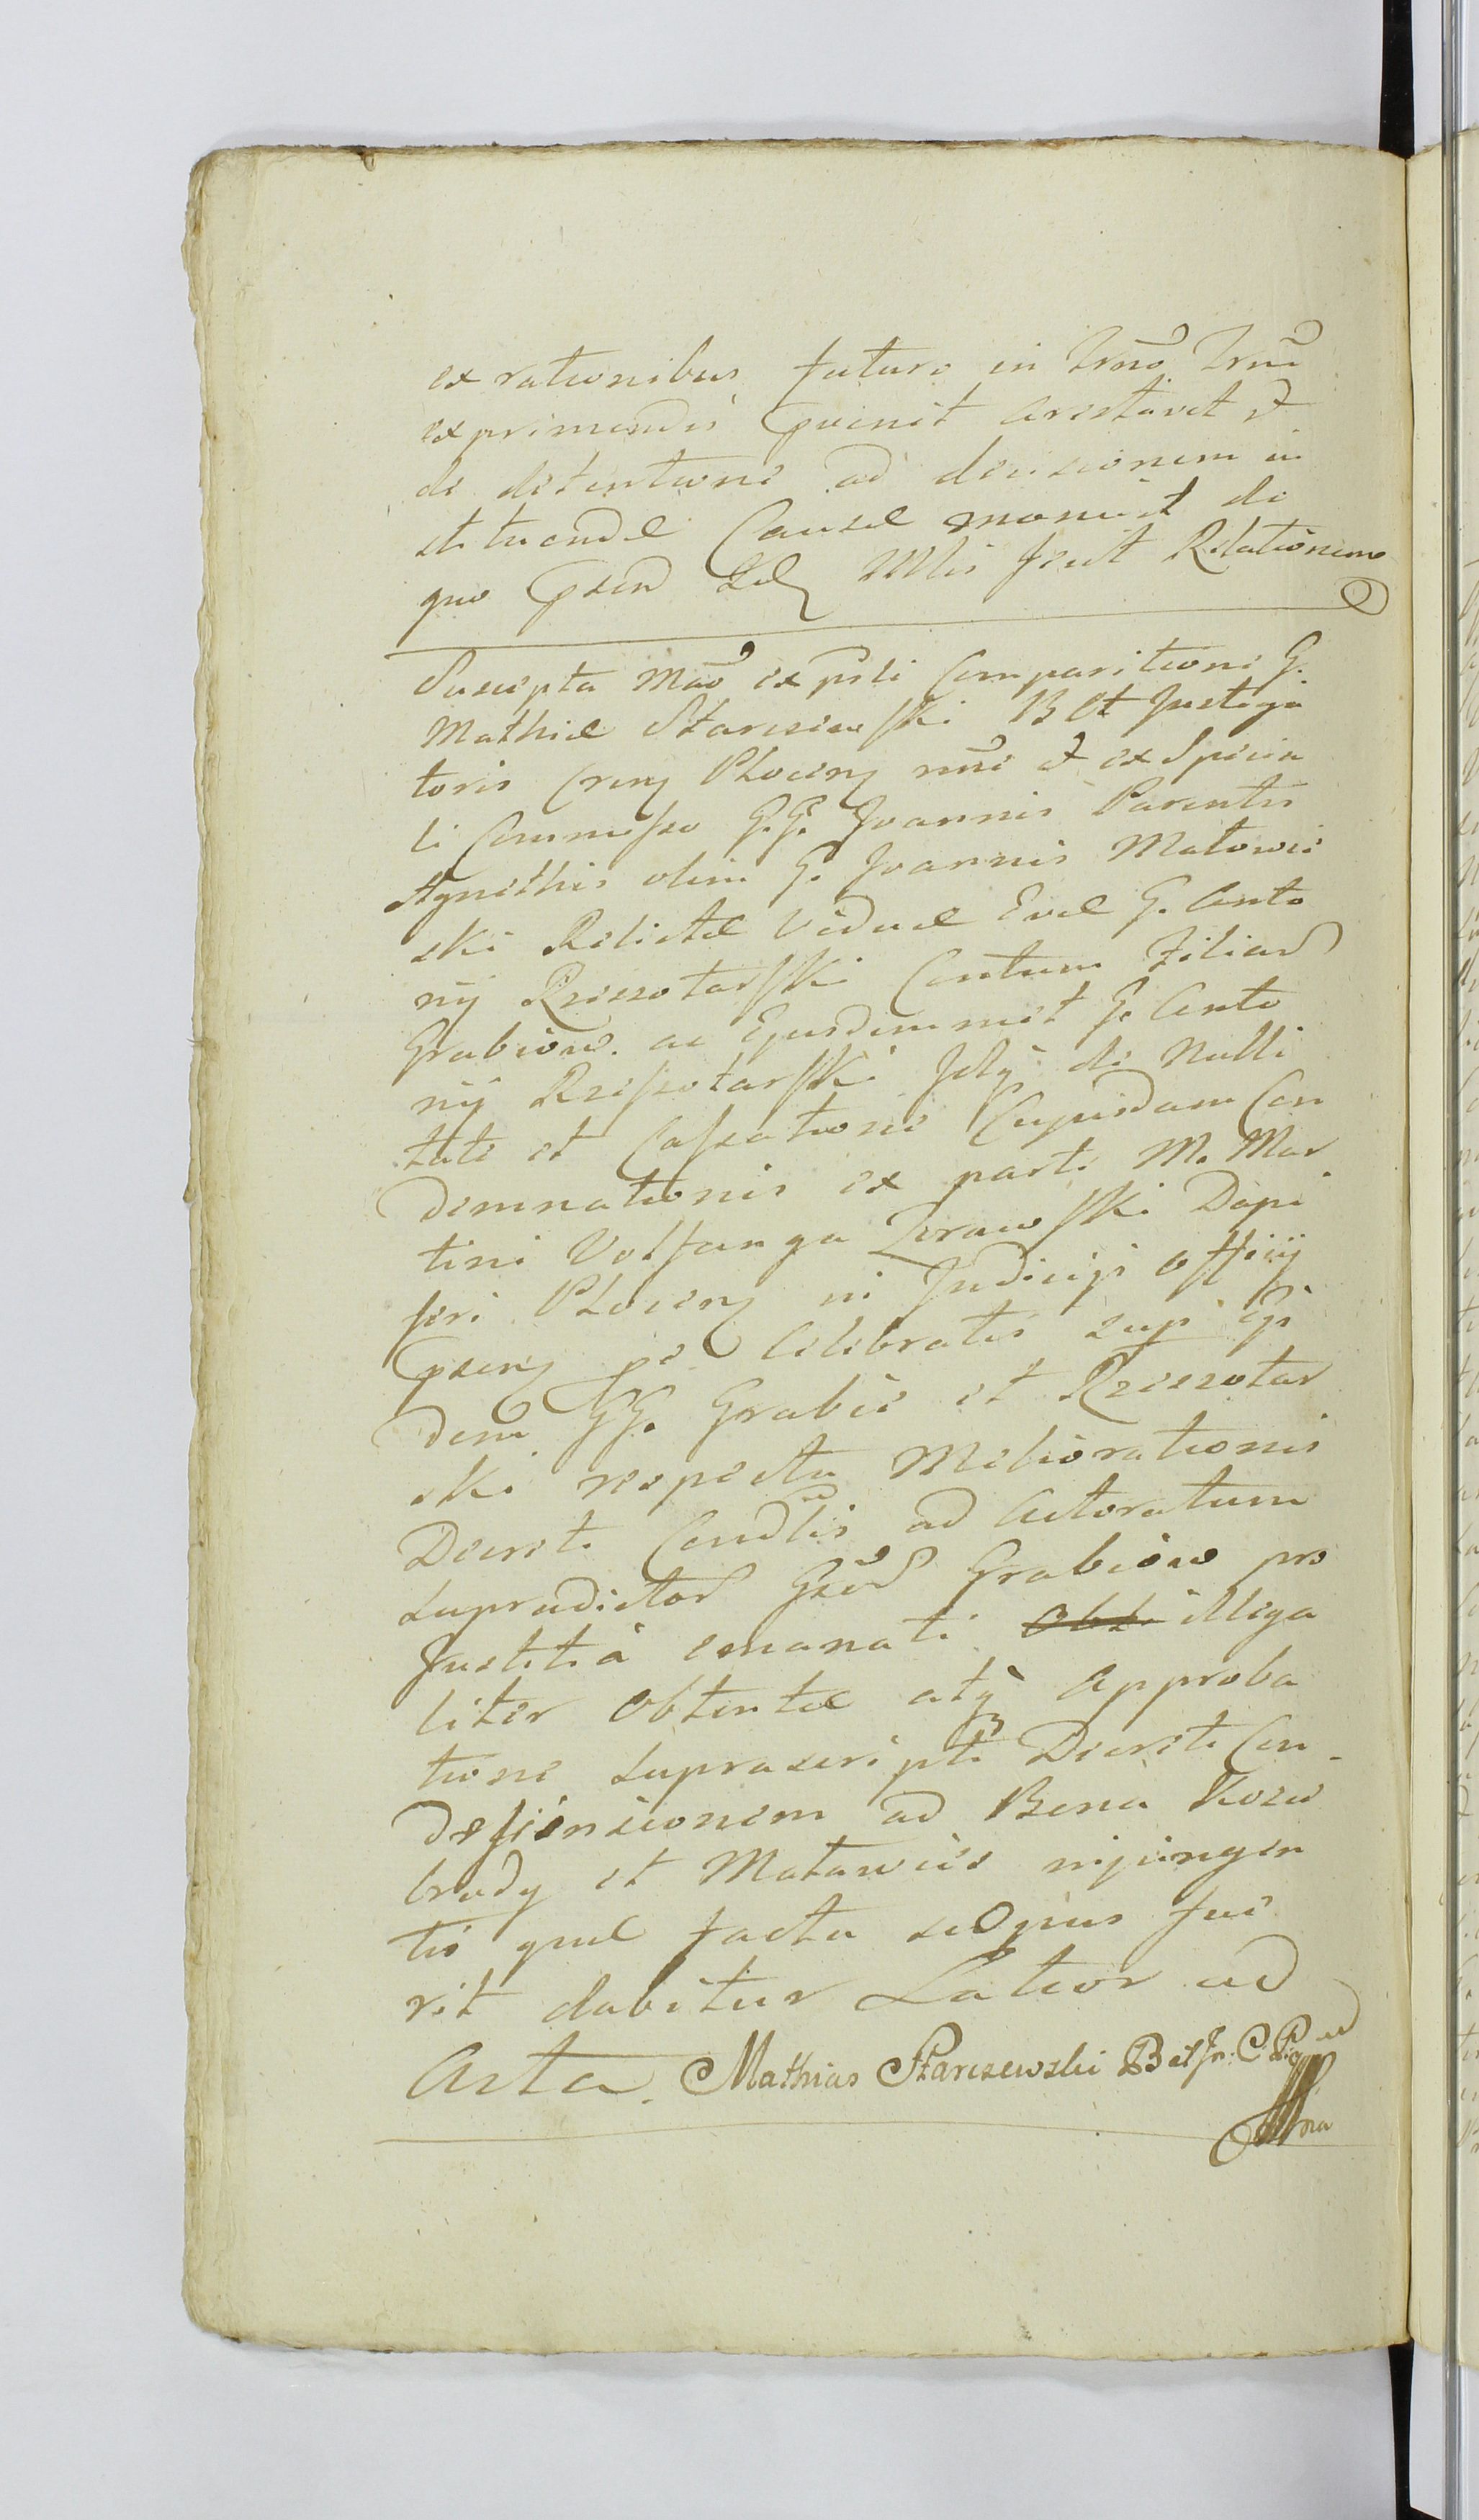 ex rationibus futuro in Trno Trni
exprimendis pvenit arestavit et
de detentione ad decisionem in
stituendæ Causæ monuit de
quo psen Illis fecit Relationem
Suscepta Mafo ex psli Comparitione G.
Mathiæ Starczewski B et Instiga
toris Cren Plocen nri et ex Specia
li Commisso G.G. Joannis Parentis
Agnethis olim G. Joannis Matowie
ski Relictæ Viduæ Evæ G. Anto
nij Rzeszotarski Contum Filiar
Grabiow. ac Ejusdemmet G. Anto
nij Rzeszotarski de Nulli
tate et Cassatione Cujusdam Con
demnationis ex parte M. Mar
tini Volfanga Zorawski Dapi
feri Plocen in Judicijs Officij
psen celebratis sup ijs
dem GG. Grabie et Rzeszotar
ski respectu Meliorationis
Decreti Condlis ad Actoratum
supradictor Gsor Grabiow pro
Justitia emanati illega
liter Obtentæ atq Approba
tione suprascripti Decreti Con
desicnsionem ad Bena Kozie
brody et Matawiis injungen
tis quæ facta si Opus fue
rit dabitur Latior ad
Acta. Mathias Starczewski B et In: C: P: